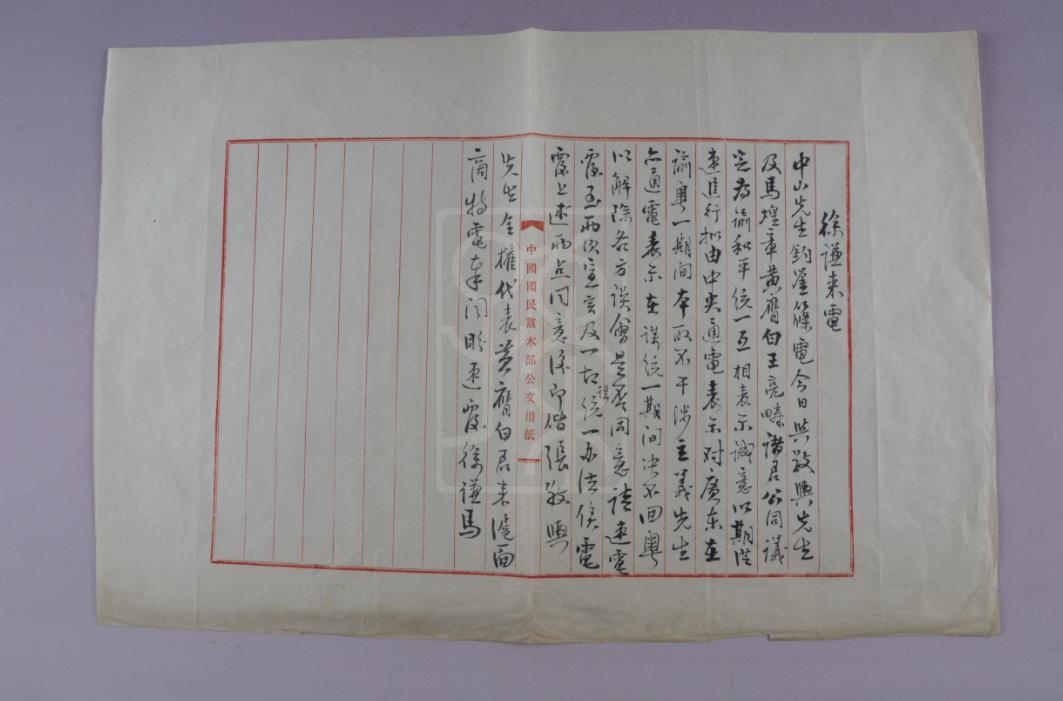 徐謙来電
中山先生鈞鉴篠電今日與敬輿先生
及馬煌章黄膺白王亮疇諸君公同議
定为謀和平統一互相表示誠意以期從
速進行拟由中央通電表示对廣东在
議粤一期间本取不干涉主義先生
亦通電表示在謀統一期间决不回粤
以解除各方误會是否同意請速電
覆至兩次宣言及一切統一办法俟電
覆上述兩点同意後即偕張敬輿
先生全權代表黄膺白君来滬面
商特電奉闻盼速覆徐謙馬
中國國民黨本部公文用紙